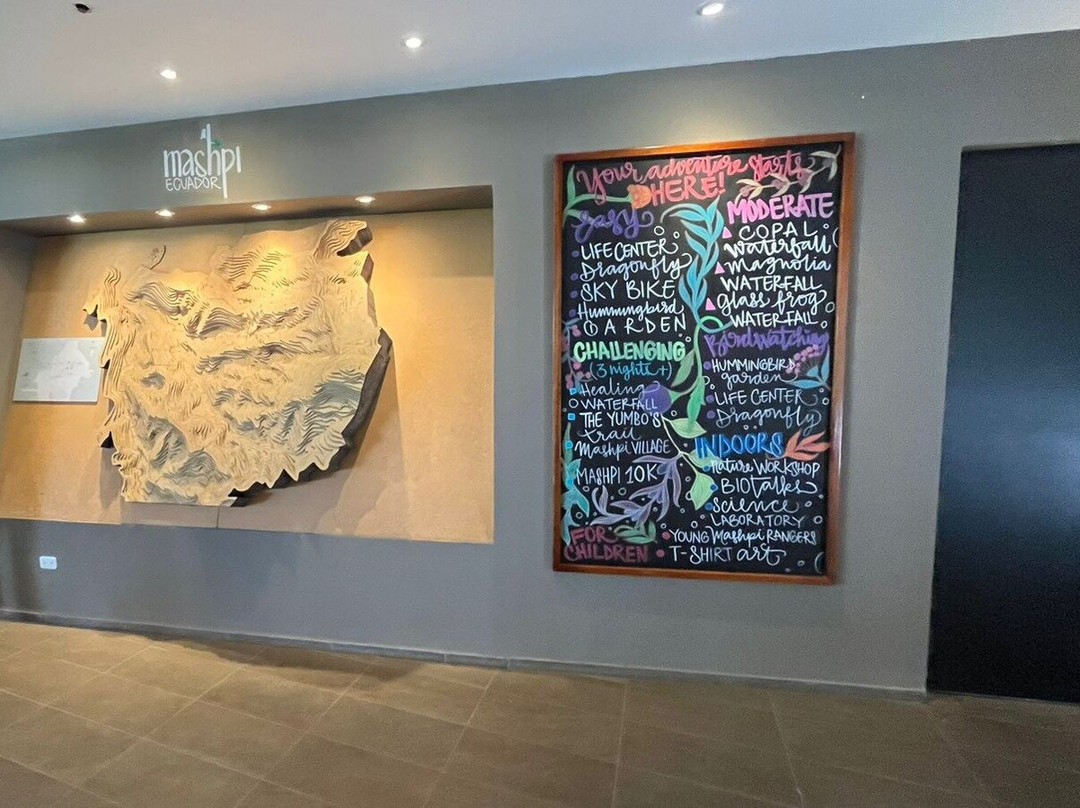 mashpi
ECUADOR
Your adventure starts
HERE!
Easy
LIFE CENTER
Dragonfly
SKY BIKE
Hummingbird
GARDEN
CHALLENGING
(3 nights +)
Healing
WATERFALL
THE YUMBO'S
trail
Mashpi VILLAGE
MASHPI 10K
FOR
CHILDREN
MODERATE
COPAL
Waterfall
Magnolia
WATERFALL
glass frog
WATERFALL
Birdwatching
HUMMINGBIRD
garden
LIFE CENTER
Dragonfly
INDOORS
Nature WORKSHOP
BIOtalks
Science
LABORATORY
YOUNG Mashpi RANGERS
T-SHIRT art